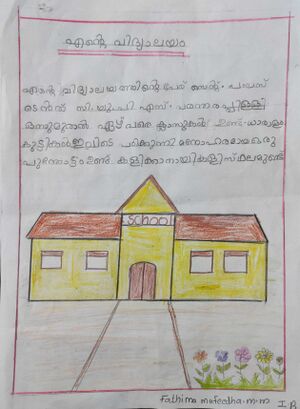 എന്റെ വിദ്യാലയം
എന്റെ വിദ്യാലയത്തിന്റെ പേര് സെന്റ്. പോൾസ്
സി.യു.പി എസ്.
ഒന്നുമുതൽ ഏഴ് വരെ ക്ലാസുകൾ ഉണ്ട്. ധാരാളം
കുട്ടികൾ ഇവിടെ പഠിക്കുന്നു മനോഹരമായ ഒരു
പൂന്തോട്ടം ഉണ്ട്. കളിക്കാനായി കളിസ്ഥലമുണ്ട്
SCHOOL
Fathima mufeedha.m.m I B